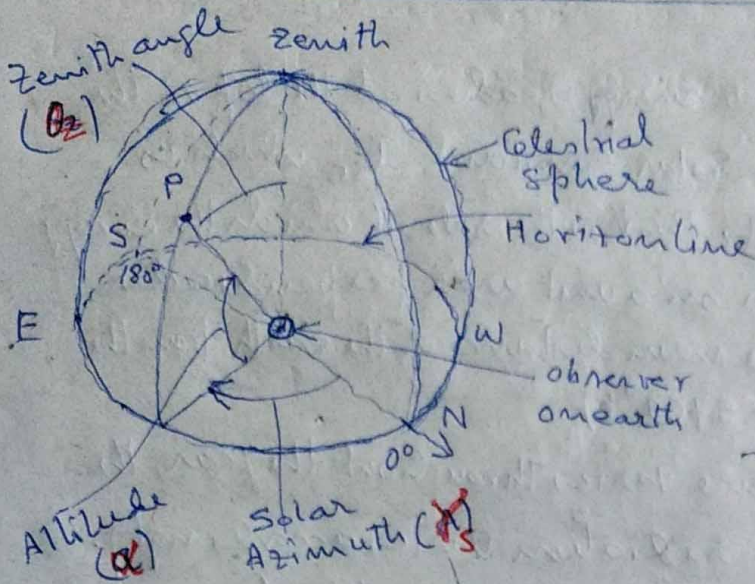 Zenith angle
(θz)
Zenith
Celestrial
sphere
Horizon line
P
S
180°
E
W
observer
on earth
N
0°
Altitude
(α)
Solar
Azimuth (γs)